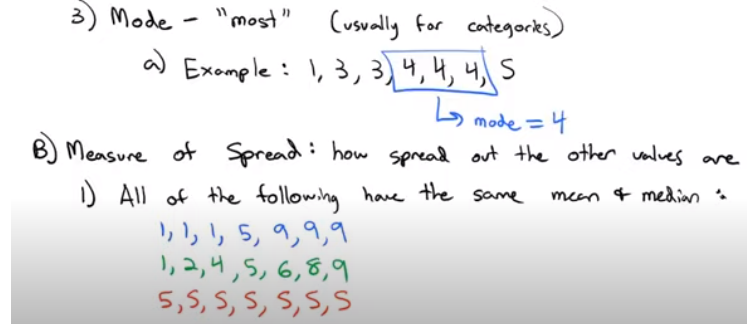 3) Mode - "most" (usually for categories)
a) Example: 1, 3, 3, 4, 4, 4, 5
↳ mode = 4
B) Measure of Spread: how spread out the other values are
1) All of the following have the same mean & median:
1, 1, 1, 5, 9, 9, 9
1, 2, 4, 5, 6, 8, 9
5, 5, 5, 5, 5, 5, 5